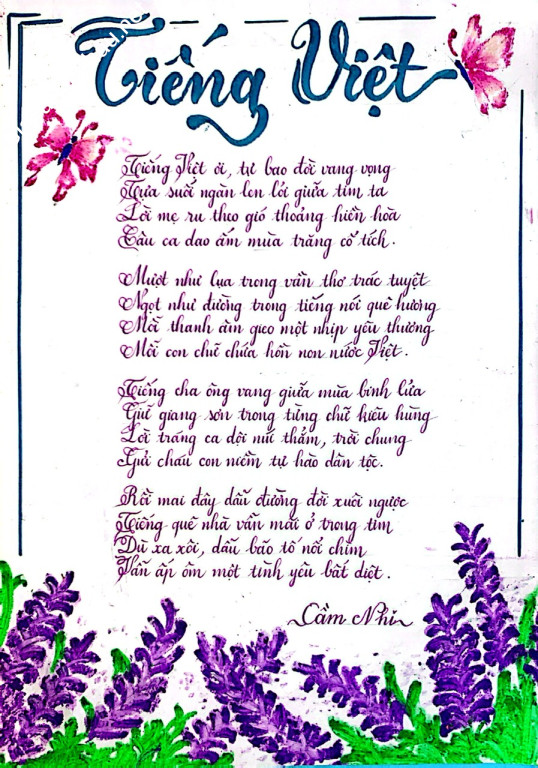 Tiếng Việt
Tiếng Việt ơi, tự bao đời vang vọng
Tựa suối ngàn len lỏi giữa tim ta
Lời mẹ ru theo gió thoảng hiền hòa
Câu ca dao ấm mùa trăng cổ tích.
Mượt như lụa trong vần thơ trác tuyệt
Ngọt như đường trong tiếng nói quê hương
Mỗi thanh âm gieo một nhịp yêu thương
Mỗi con chữ chứa hồn non nước Việt.
Tiếng cha ông vang giữa mùa binh lửa
Giữ giang sơn trong từng chữ kiêu hùng
Lời tráng ca dội núi thẳm, trời chung
Gửi cháu con niềm tự hào dân tộc.
Rồi mai đây dấu đường đời xuôi ngược
Tiếng quê nhà vẫn mãi ở trong tim
Dù xa xôi, dẫu bão tố nổi chìm
Vẫn ấp ôm một tình yêu bất diệt.
Cầm Nhi